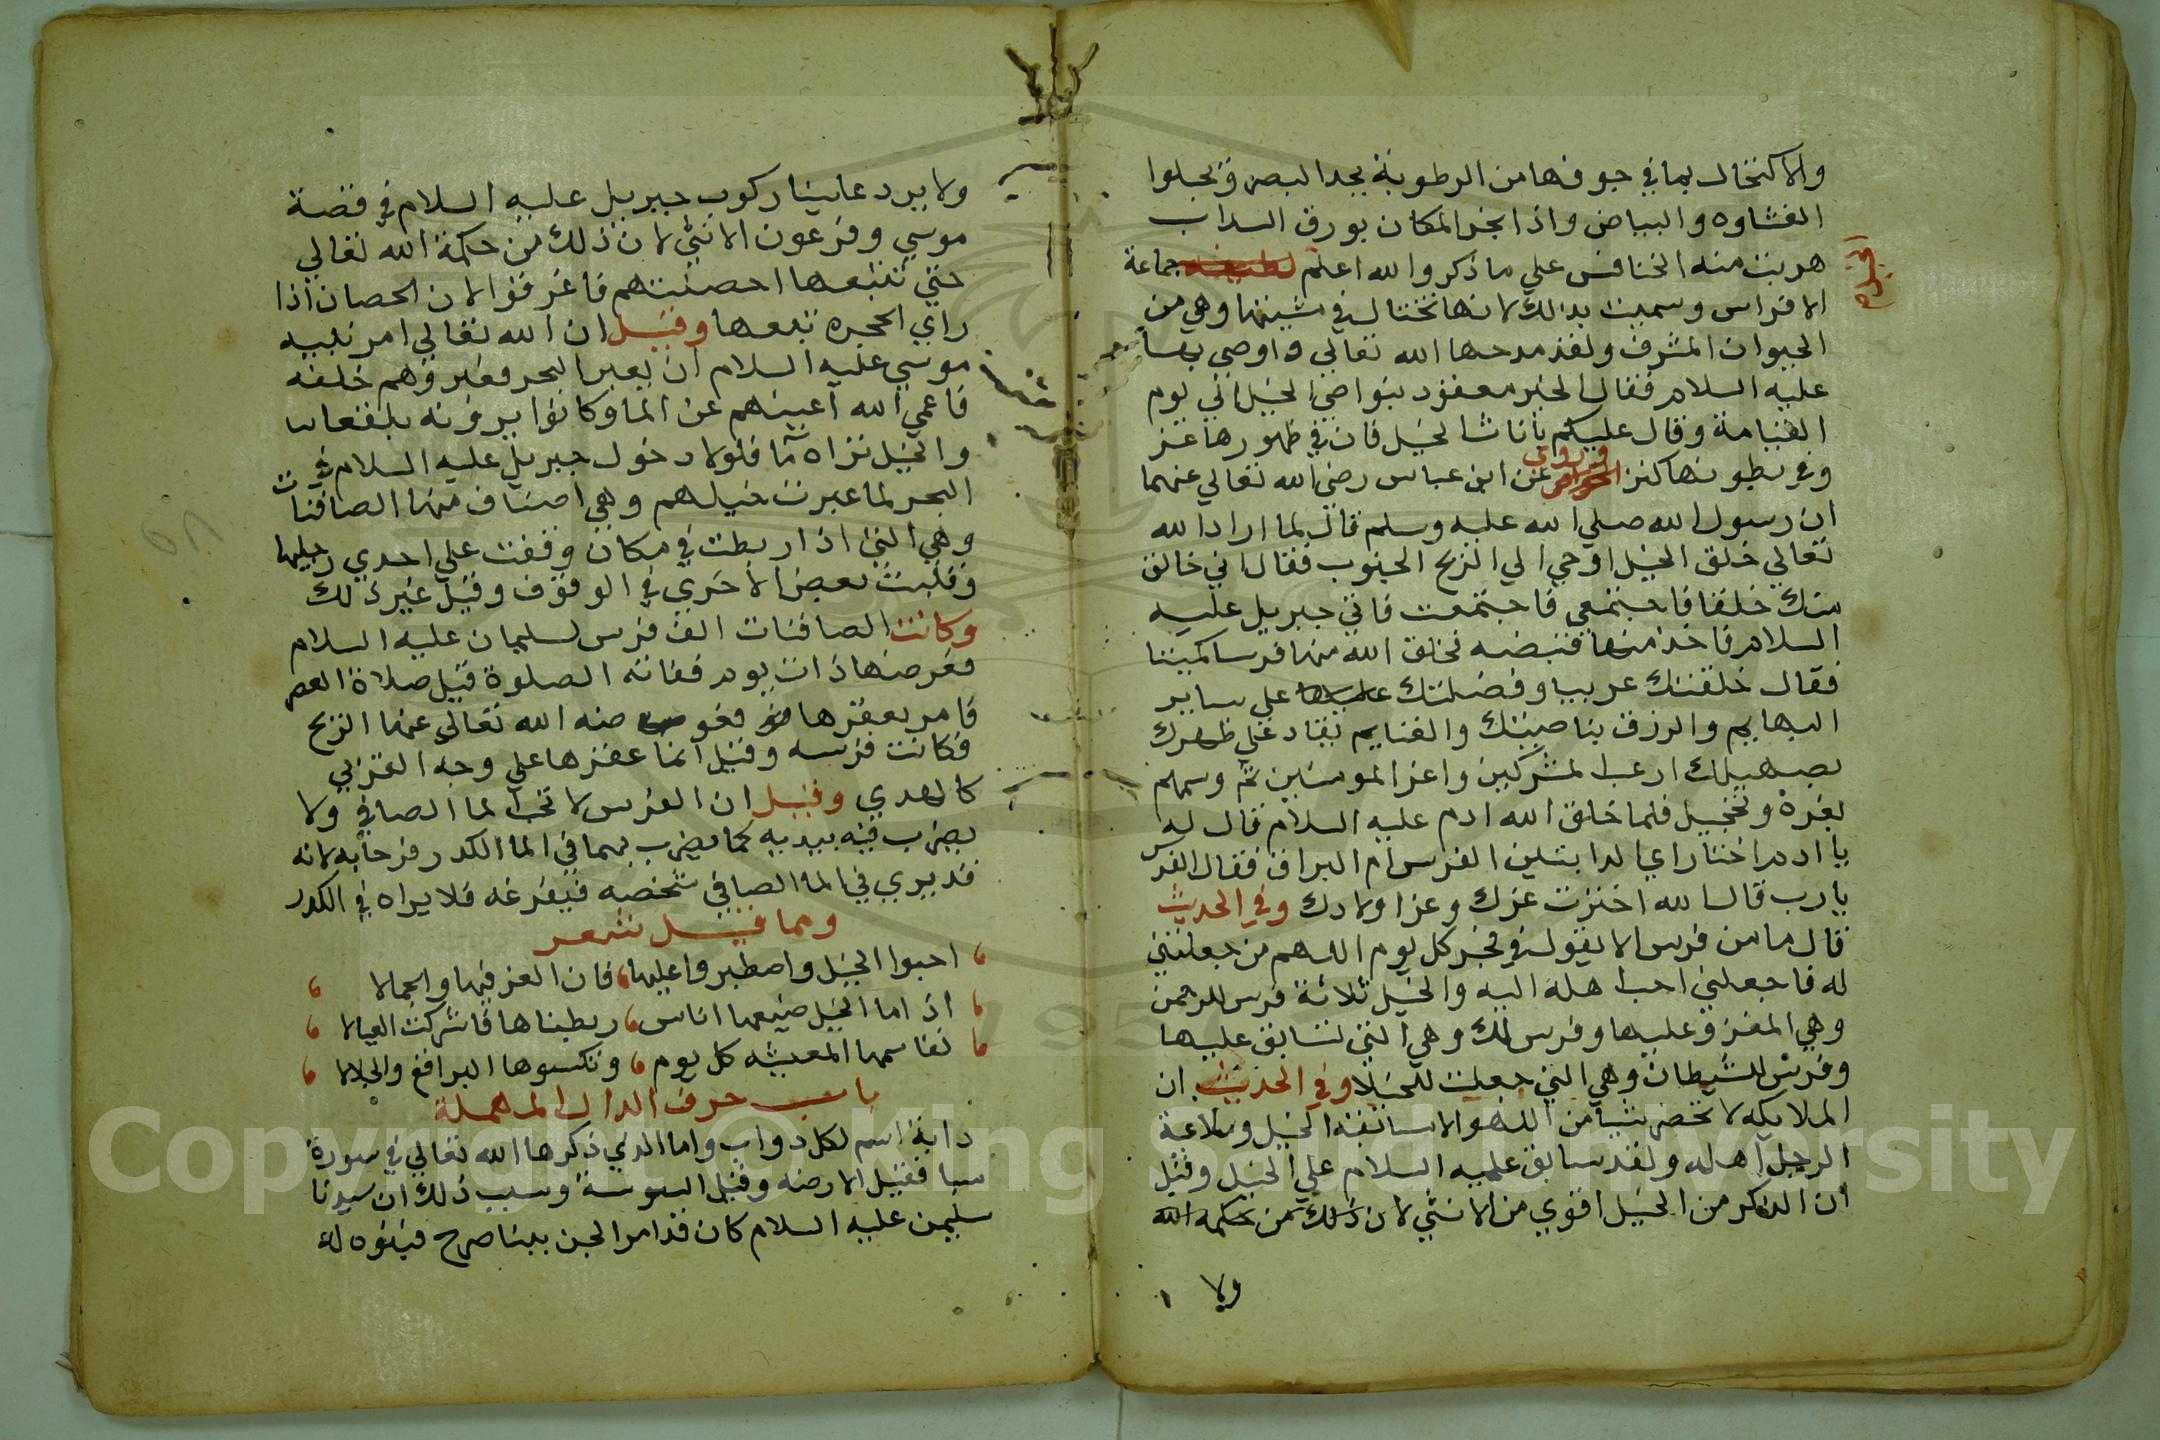 والاكتحال بما في جوفها من الرطوبة يحد البصر ويجلوا
الغشاوه والبياض واذا بخر المكان بورق السداب
هربت منه الخنافس علي ما ذكروا والله اعلم جماعة
الخيل
الافراس وسميت بذلك لانها تختال في مشيتها وهي من
الحيوان المشرف ولقد مدحها الله تعالي واوصي بها
عليه السلام فقال الخير معقود بنواصي الخيل الي يوم
القيامة وقال عليكم باناث الخيل فان في ظهورها عز
وفي بطونها كنز وروي عن ابن عباس رضي الله تعالي عنهما
ان رسول الله صلي الله عليه وسلم قال لما اراد الله
تعالي خلق الخيل اوحي الي الريح الجنوب فقال اني خالق
منك خلقا فاجتمعي فاجتمعت فاتي جبريل عليه
السلام فاخذ منها قبضه فخلق الله منها فرسا كميتا
فقال خلقتك عربيا وفضلتك علي ساير
البهايم والرزق بناصيتك والغنايم تقاد علي ظهرك
بصهيلك ارعب المشركين واعز المومنين ثم وسمهم
بغرة وتحجيل فلما خلق الله ادم عليه السلام قال له
يا ادم اختار اي الدابتين الفرس ام البراق فقال الفرس
يارب قال الله اخترت عزك وعز اولادك وفي الحديث
قال ما من فرس الا يقول في فجر كل يوم اللهم من جعلتني
له فاجعلني احب اهله اليه والخيل ثلاثة فرس للرحمن
وهي المغزو عليها وفرس لك وهي التي تسابق عليها
وفرس للشيطان وهي التي جعلت للخيلا وفي الحديث ان
الملايكه لا تحضر شيا من اللهو الا مسابقة الخيل وملاعبة
الرجل اهله ولقد سابق عليه السلام علي الخيل وقيل
ان الذكر من الخيل اقوي من الانثي لان ذلك من حكمه الله
ولا
ولا يرد علينا ركوب جبريل عليه السلام في قصة
موسي وفرعون الانثي لان ذلك من حكمة الله تعالي
حتي تتبعها احصنتهم فاغرقوا لان الحصان اذا
راي الحجره تبعها وقيل ان الله تعالي امر نبيه
موسي عليه السلام ان يعبر البحر فعبر وهم خلفه
فاعمي الله اعينهم عن الما وكانوا يرونه بلقعا
والخيل تراه ما فلولا دخول جبريل عليه السلام في
البحر لما عبرت خيلهم وهي اصناف منها الصافنات
وهي التي اذا ربطت في مكان وقفت علي احدي رجليها
وقلبت بعض الاخري في الوقوف وقيل غير ذلك
وكانت الصافنات الف فرس لسليمان عليه السلام
فعرضها ذات يوم ففاته الصلوة قيل صلاة العصر
فامر بعقرها فعوضه الله تعالي عنها الريح
فكانت فرسه وقيل انما عقرها علي وجه القربي
كالهدي وقيل ان الفرس لا تحب الما الصافي ولا
يضرب فيه بيديه كما يضرب بهما في الما الكدر فرحا به لانه
قد يري في الما الصافي شخصه فيفزعه فلا يراه في الكدر
ومما قيل شعر
احبوا الخيل واصطبروا عليها فان العز فيها والجمالا
اذا ما الخيل ضيعها اناس ربطناها فاشركت العيالا
نقاسمها المعيشه كل يوم ونكسوها البراقع والجلالا
باب حرف الدال المهملة
دابة اسم لكل دواب واما الذي ذكرها الله تعالي في سورة
سبا فقيل الارضه وقيل السوسة وسبب ذلك ان سيدنا
سليمن عليه السلام كان قد امر الجن ببنا صرح فبنوه له
Copyright © King Saud University